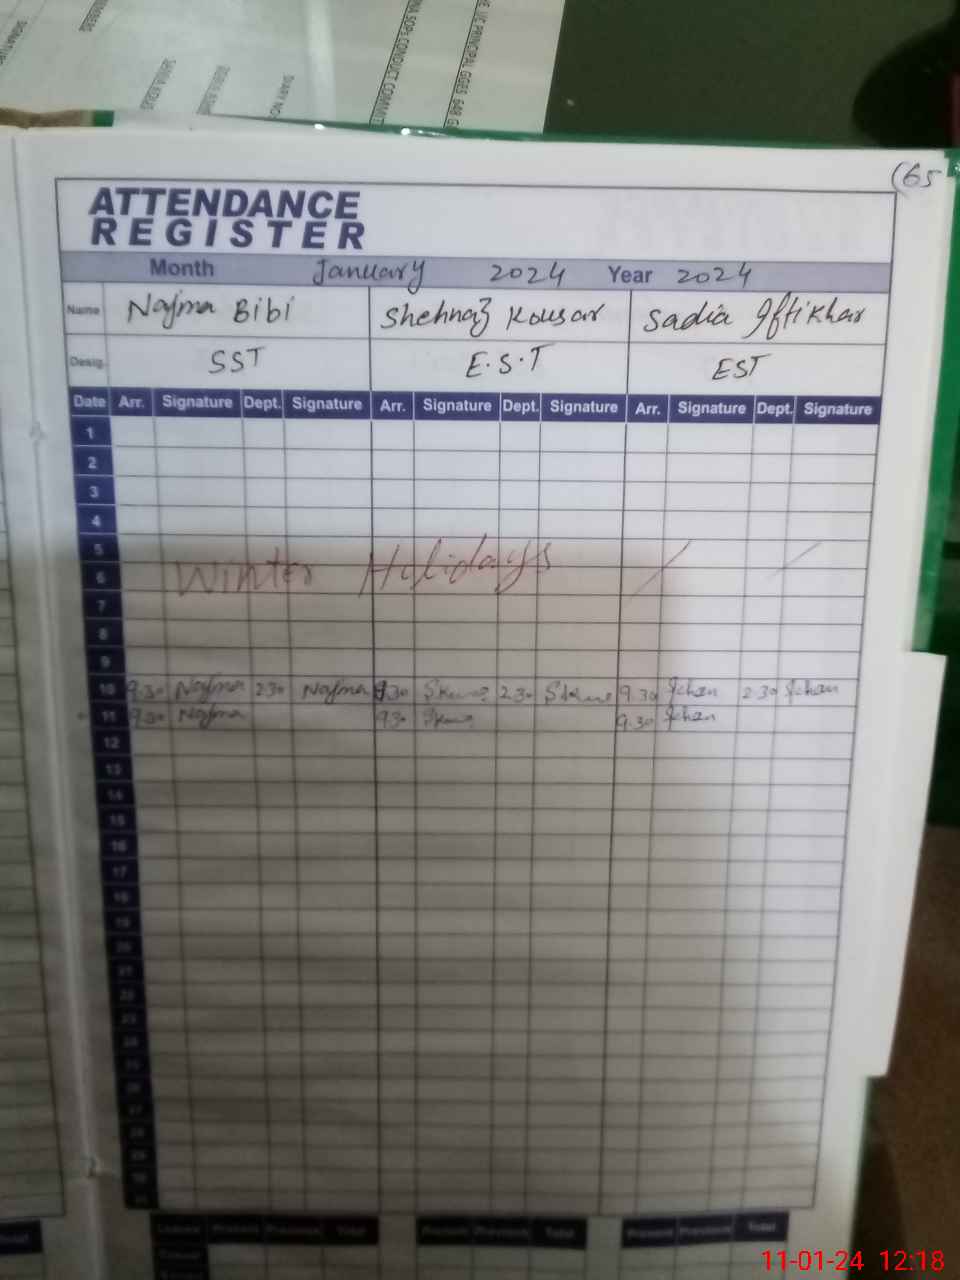 SOPs CONDUCT COMMIT
PRINCIPAL GGES 648 G
DIARY NO
(65
ATTENDANCE
REGISTER
Month January 2024 Year 2024
Name Najma Bibi Shehnaz Kousar Sadia Iftikhar
Desig. SST E.S.T EST
Date Arr. Signature Dept. Signature Arr. Signature Dept. Signature Arr. Signature Dept. Signature
1
2
3
4
5
Winter Holidays
6
7
8
9
10 9.30 Najma 2.30 Najma 9.30 2.30 9.30 2.30
11 9.30 Najma 9.30 9.30
12
13
14
15
16
17
18
19
20
21
22
23
24
25
26
27
28
29
30
31
Leaves Present Previous Total Present Previous Total Present Previous Total
Casual
11-01-24 12:18